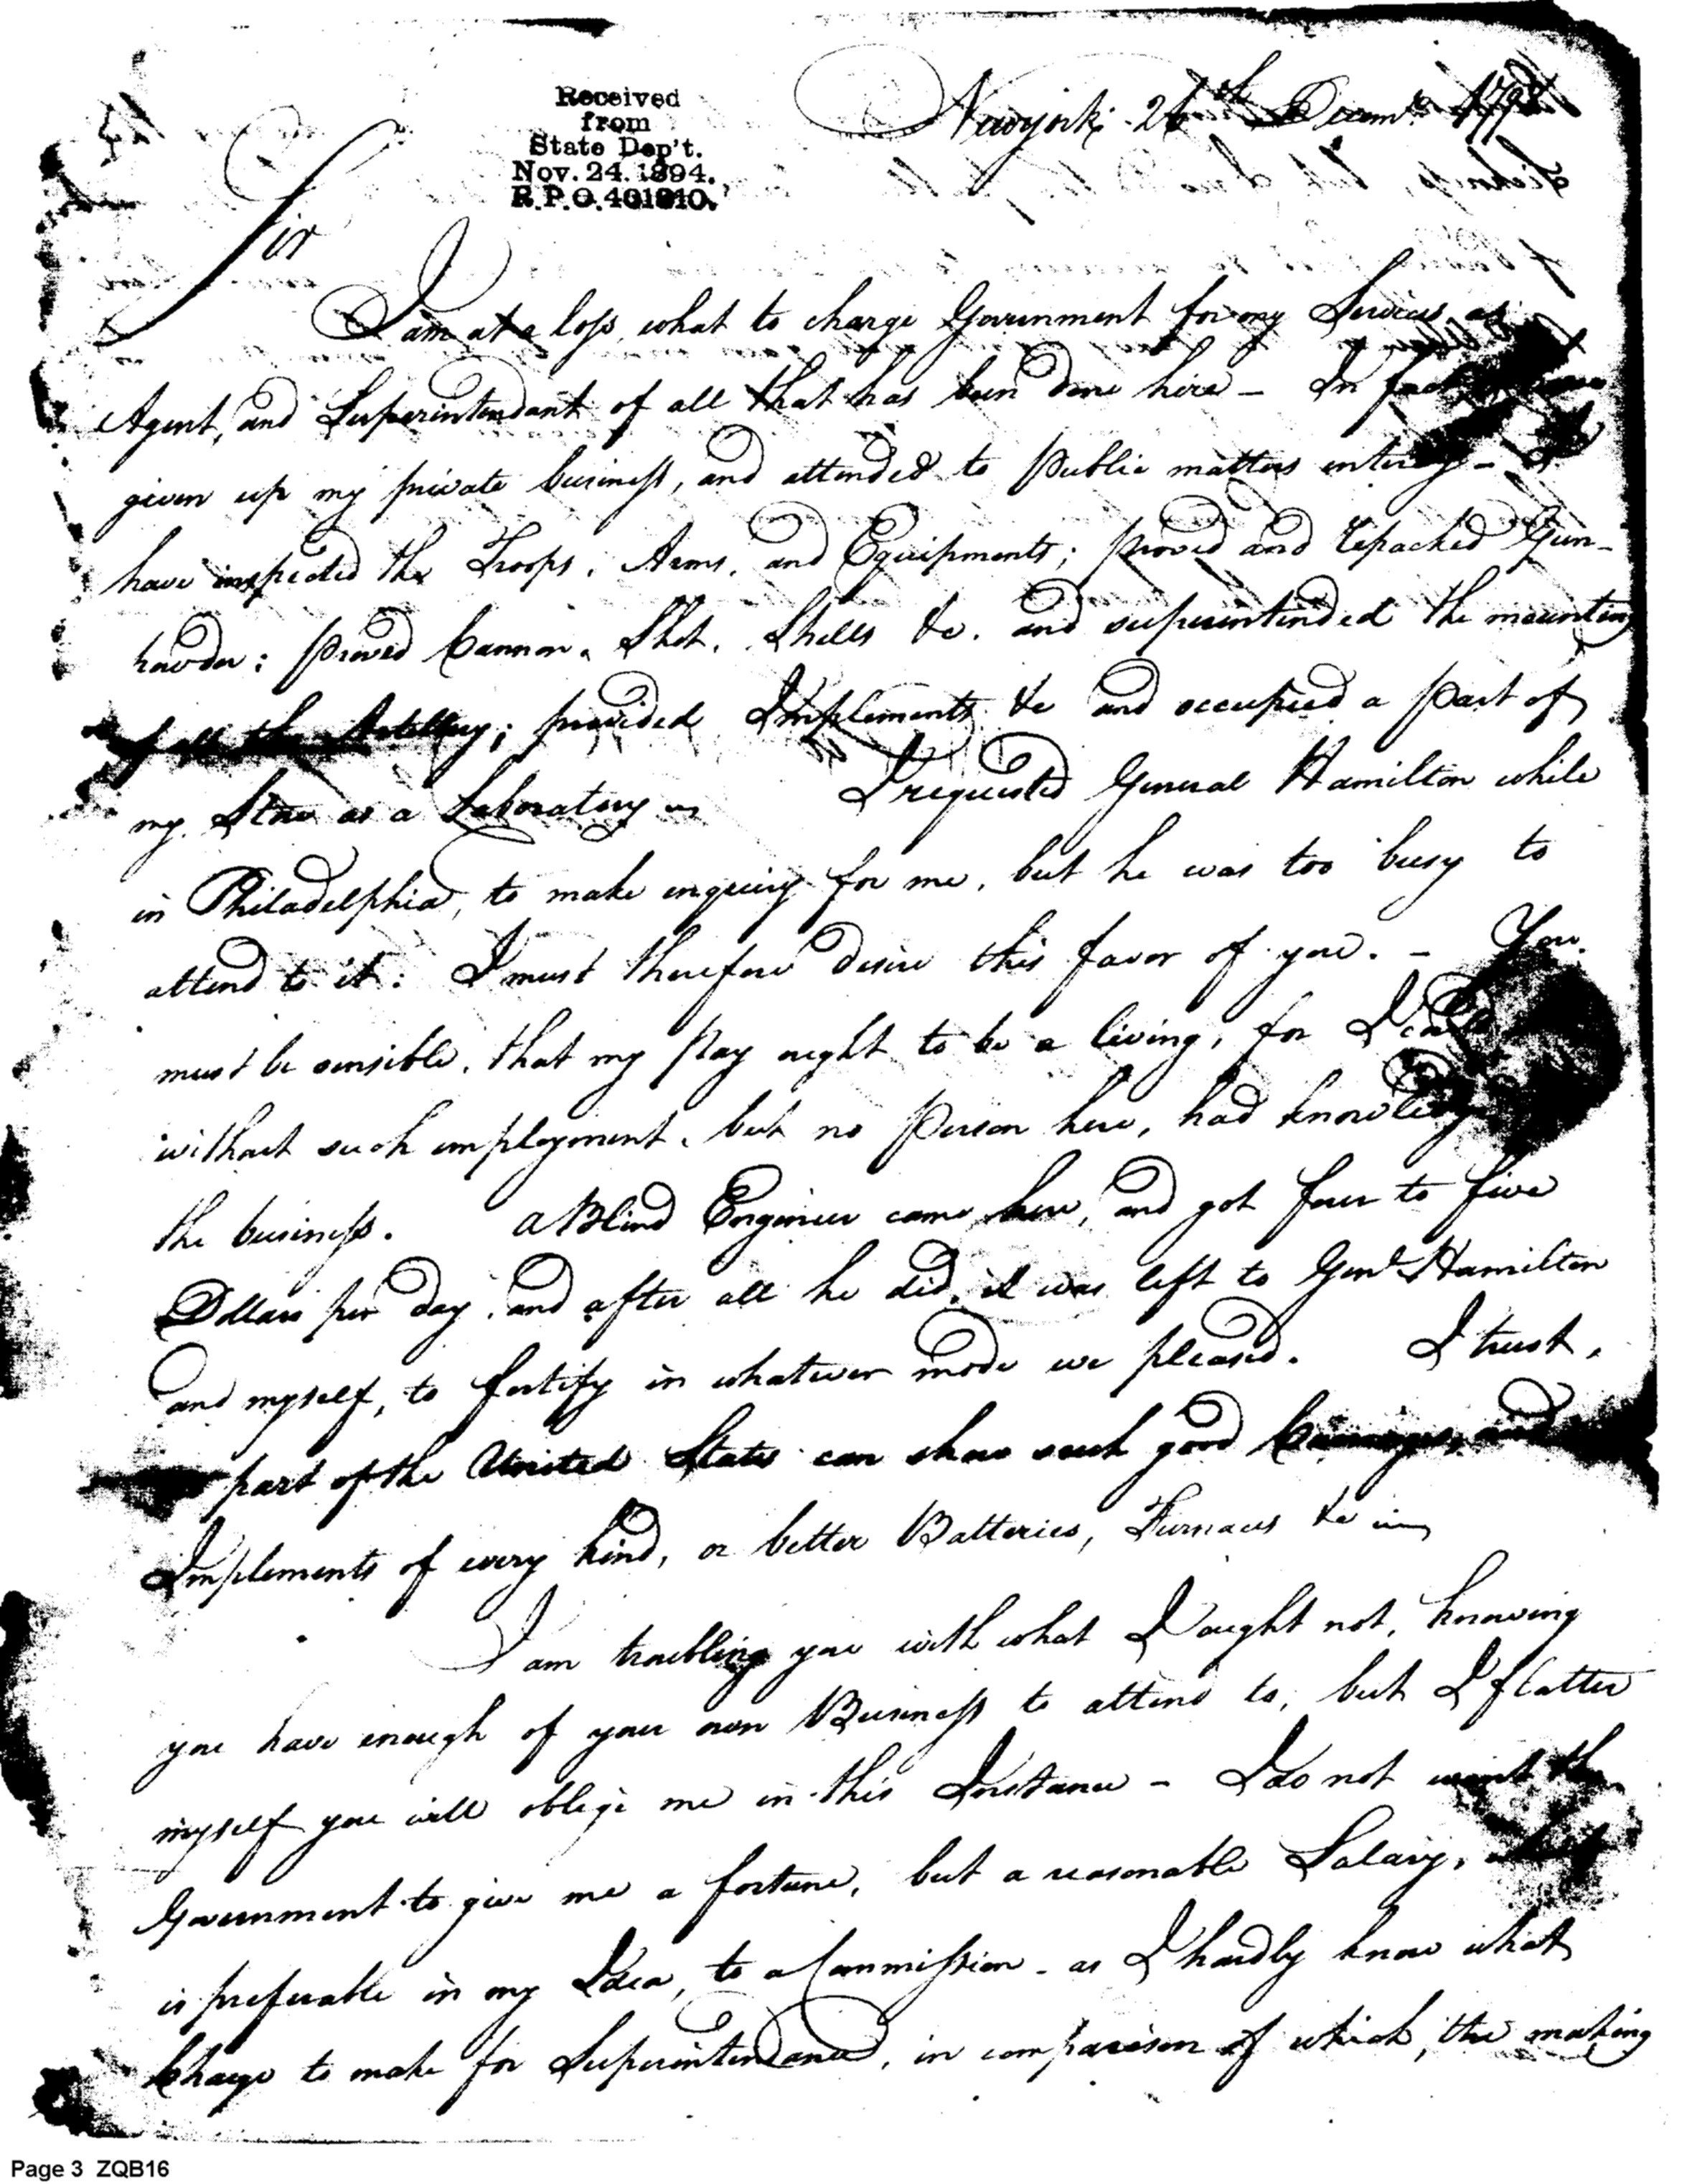 Received
from
State Dep't.
Nov. 24. 1894.
R.P.O. 401910.
Newyork 26th Decemr. 1798
Sir
I am at a loss, what to charge Government for my Services, as
Agent, and Superintendant of all that has been done here – In fact
given up my private business, and attended to Public matters entirely – I
have inspected the Troops, Arms, and Equipments; proved and repacked Gun-
powder; proved Cannon, Shot, Shells &c. and superintended the mounting
of all the Artillery; provided Implements &c and occupied a part of
my Store as a Laboratory – I requested General Hamilton while
in Philadelphia, to make enquiry for me, but he was too busy to
attend to it: I must therefore desire this favor of you. – You
must be sensible, that my Pay ought to be a living, for I
without such employment, but no Person here, had knowledge
the business. A Blind Engineer came here, and got four to five
Dollars per day, and after all he did, it was left to Genl. Hamilton
and myself, to fortify in whatever mode we pleased. I trust,
part of the United States can show such good Carriages, and
Implements of every kind, or better Batteries, Furnaces &c
I am troubling you with what I ought not, knowing
you have enough of your own Business to attend to, but I flatter
myself you will oblige me in this Instance – I do not want the
Government to give me a fortune, but a reasonable Salary,
is preferable in my Idea, to a Commission – as I hardly know what
Charge to make for Superintendance, in comparison of which, the making
Page 3 ZQB16